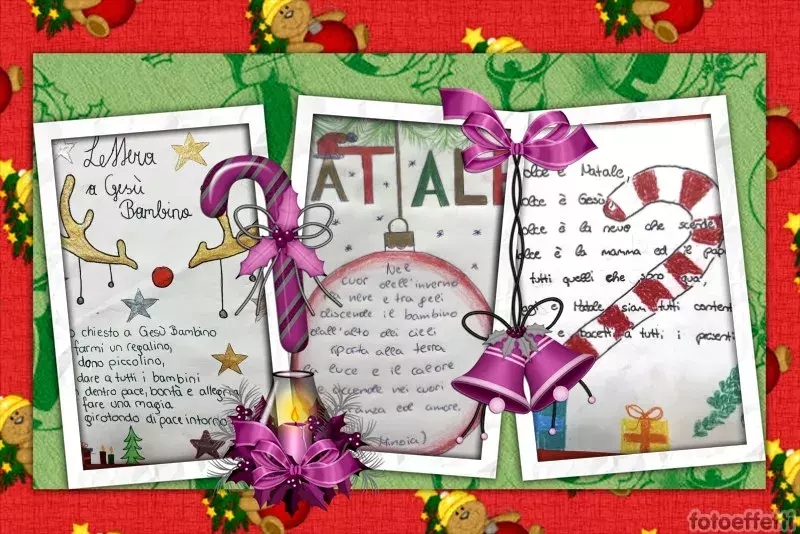 Lettera
a Gesù
Bambino
o chiesto a Gesù Bambino
farmi un regalino,
dono piccolino,
dare a tutti i bambini
dentro pace, bontà e allegr
fare una magia
girotondo di pace intorno
ATALE
Nel
cuor dell'inverno
neve e tra geli
discende il bambino
dall'alto dei cieli
riporta alla terra
a luce e il calore
accende nei cuori
ranza ed amore.
Minoia)
olce è Natale,
olce è Gesù
olce è la neve che scende
olce è la mamma ed il pap
tutti quelli che sono qua,
ggi è Natale siam tutti contenti
e bacetti a tutti i presenti
fotoeffetti